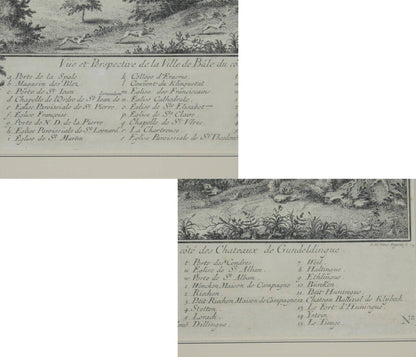 Vüe et Perspective de la Ville de Bâle du co
a Porte de la Spale
b Magazin des Blez
c Porte de St Jean
d Chapelle de l'Ordre de St Jean de
e Eglise Paroissiale de St Pierre
f Eglise Françoise
g Porte de N. D. de la Pierre
h Eglise Paroissiale de St Leonard
i Eglise de St Martin
k College d'Erasme
l Couvent du Klingental
m Eglise des Franciscains
n Eglise Cathedrale
o Eglise de Ste Elisabet
p Eglise de Ste Claire
q Chapelle de St
r La Chartreuse
s Eglise Paroissiale de St Theodore
côté des Chateaux de Gundeldingue
t Porte des Cendres
u Eglise de St Alban
w Porte de St Alban
1 Maison de Campagne
2 Riechen
3 Petit Riechen Maison de Campagne
4 Stetten
5 Lorach
6 Dillingue
7 Weil
8 Haltingue
9
10 Bünken
11 Petit Huningue
12 Chateau Ballival de Klybeck
13 Le Fort d'Huningue
14 Istein
15 Le Rang
No